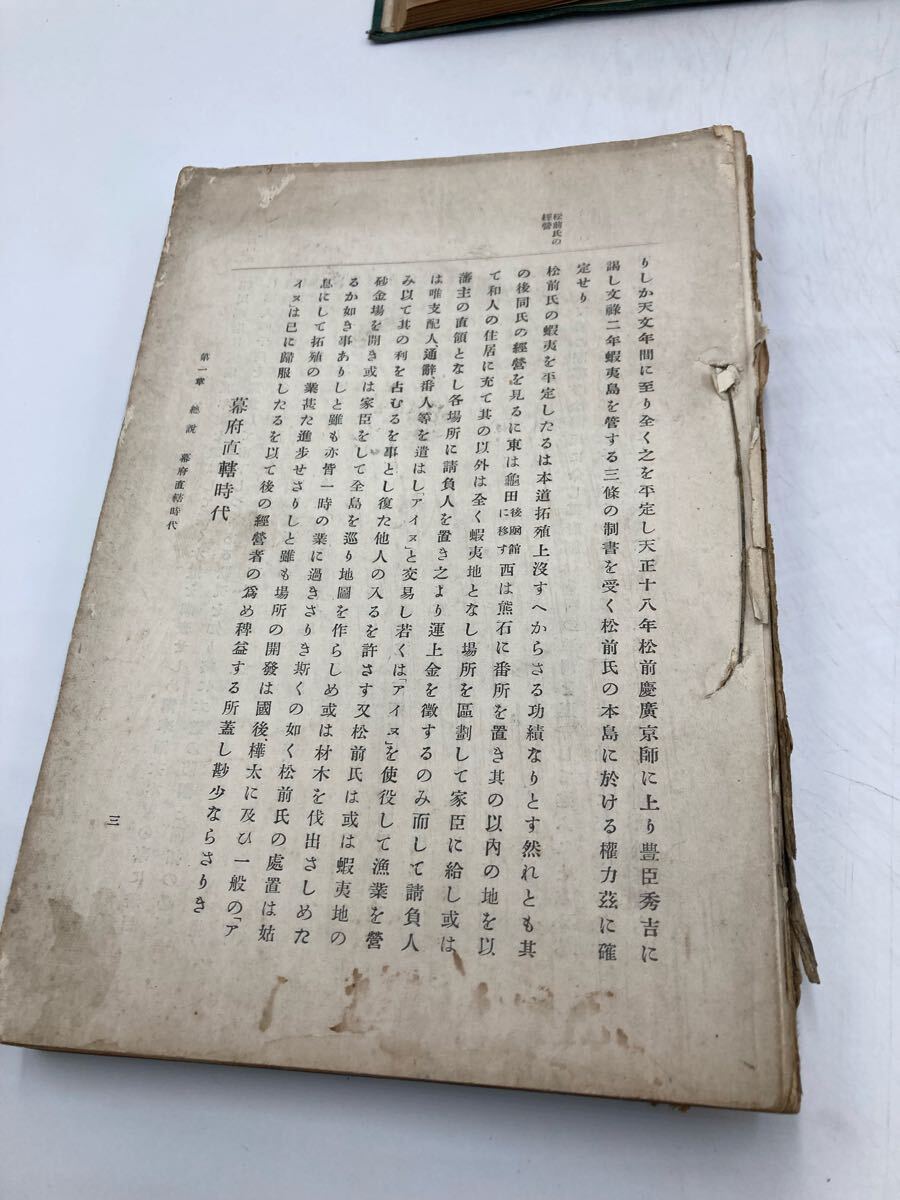 松前氏の
經營
りしか天文年間に至り全く之を平定し天正十八年松前慶廣京師に上り豊臣秀吉に
謁し文祿二年蝦夷島を管する三條の制書を受く松前氏の本島に於ける權力茲に確
定せり
松前氏の蝦夷を平定したるは本道拓殖上沒すへからさる功績なりとす然れとも其
の後同氏の經營を見るに東は龜田後函館に移す西は熊石に番所を置き其の以內の地を以
て和人の住居に充て其の以外は全く蝦夷地となし場所を區劃して家臣に給し或は
藩主の直領となし各場所に請負人を置き之より運上金を徵するのみ而して請負人
は唯支配人、通辭、番人等を遣はし「アイヌ」と交易し若くは「アイヌ」を使役して漁業を營
み以て其の利を占むるを事とし復た他人の入るを許さす又松前氏は或は蝦夷地の
砂金場を開き或は家臣をして全島を巡り地圖を作らしめ或は材木を伐出さしめた
るか如き事ありしと雖も亦皆一時の業に過きさりき斯くの如く松前氏の處置は姑
息にして拓殖の業甚た進步せさりしと雖も場所の開發は國後、樺太に及ひ一般の「ア
イヌ」は已に歸服したるを以て後の經營者の爲め裨益する所蓋し尠少ならさりき
幕府直轄時代
第一章 總說 幕府直轄時代
三